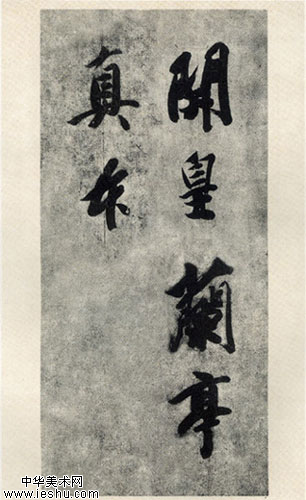 開皇蘭亭
真本
中华美术网
www.ieshu.com